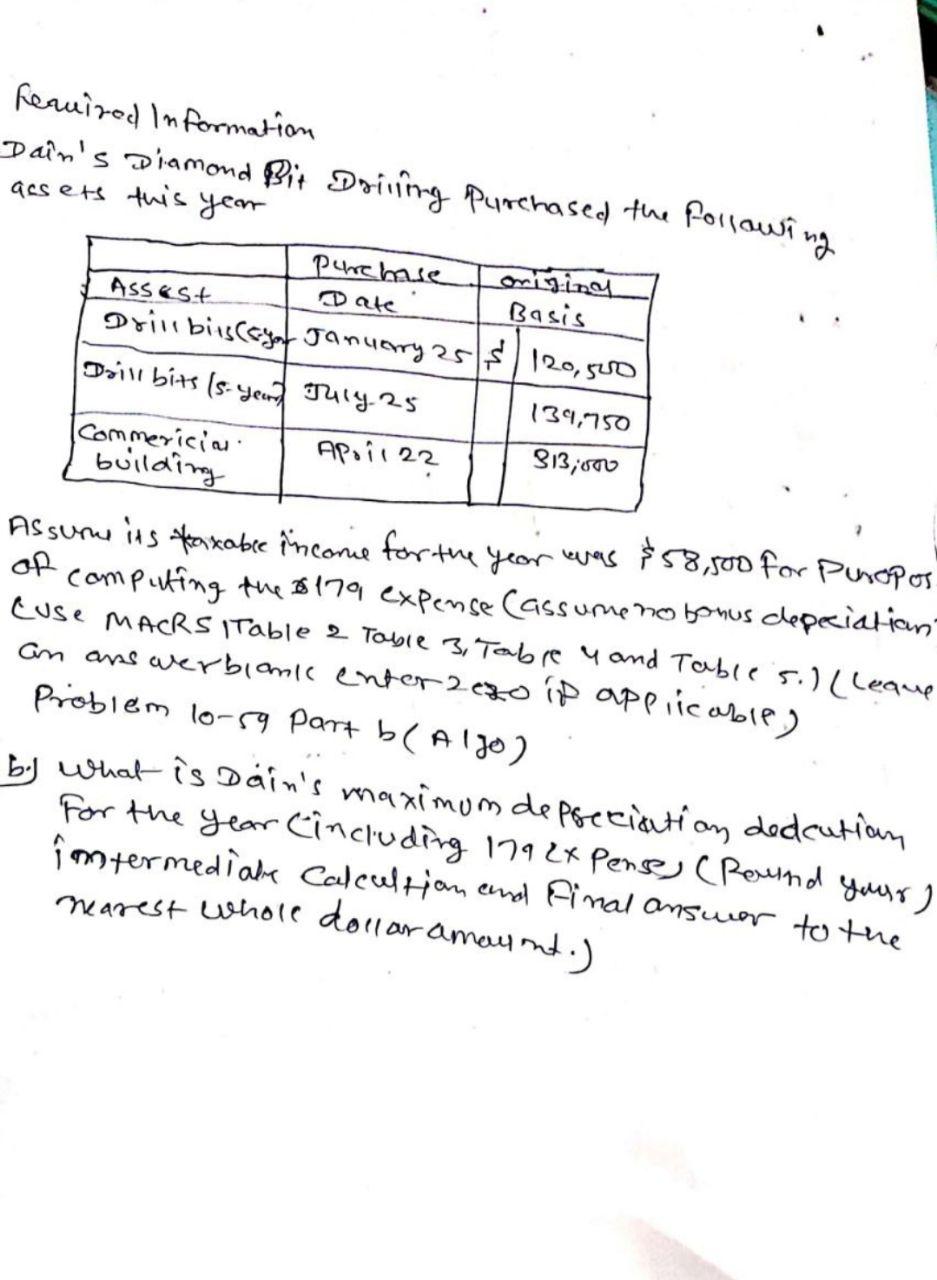 Required Information
Dain's Diamond Bit Drilling Purchased the following
assets this year
Purchase original
Assest Date Basis
Drill bits (5 year January 25 $ 120,500
Drill bits (5-year) July-25 139,750
Commericial APril 22 313,000
building
Assume its taxable income for the year was $58,500 for Puropos
of computing the $179 expense (assume no bonus depeciation
(use MACRS 1Table 2 Table 3, Table 4 and Table 5.) (Leave
an answerblank enter zero if appiicable)
Problem 10-59 Part b (Algo)
b.) What is Dain's maximum depreciation dedcution
for the year (including 179 ex Pense) (Round your)
intermediate Calcultion and Final answer to the
nearest whole dollar amount.)